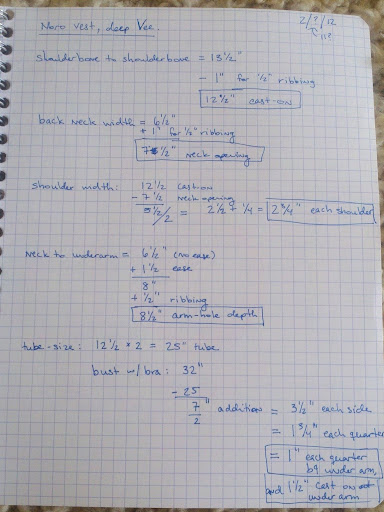 Noro vest, deep Vee. 2/?/12
shoulderbone to shoulderbone = 13½"
- 1" for ½" ribbing
12½" cast-on
back neck width = 6½"
+ 1" for ½" ribbing
7½" neck opening
shoulder width: 12½ cast-on
- 7½ neck opening
5½/2 = 2½ + ¼ = 2¾" each shoulder
neck to underarm = 6½" (no ease)
+ 1½ ease
8"
+ ½" ribbing
8½" arm-hole depth
tube-size: 12½ * 2 = 25" tube
bust w/ bra: 32"
- 25
7"/2 addition = 3½" each side
= 1¾" each quarter
= 1" each quarter
by under arm,
and 1½" cast on at
under arm